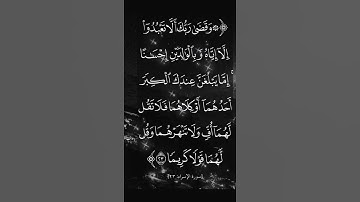 ﴿۞ وَقَضَىٰ رَبُّكَ أَلَّا تَعْبُدُوٓا۟
إِلَّآ إِيَّاهُ وَبِٱلْوَٰلِدَيْنِ إِحْسَـٰنًا
إِمَّا يَبْلُغَنَّ عِندَكَ ٱلْكِبَرَ
أَحَدُهُمَآ أَوْ كِلَاهُمَا فَلَا تَقُل
لَّهُمَآ أُفٍّ وَلَا تَنْهَرْهُمَا وَقُل
لَّهُمَا قَوْلًا كَرِيمًا ﴿٢٣﴾﴾
[سورة الإسراء: ٢٣]